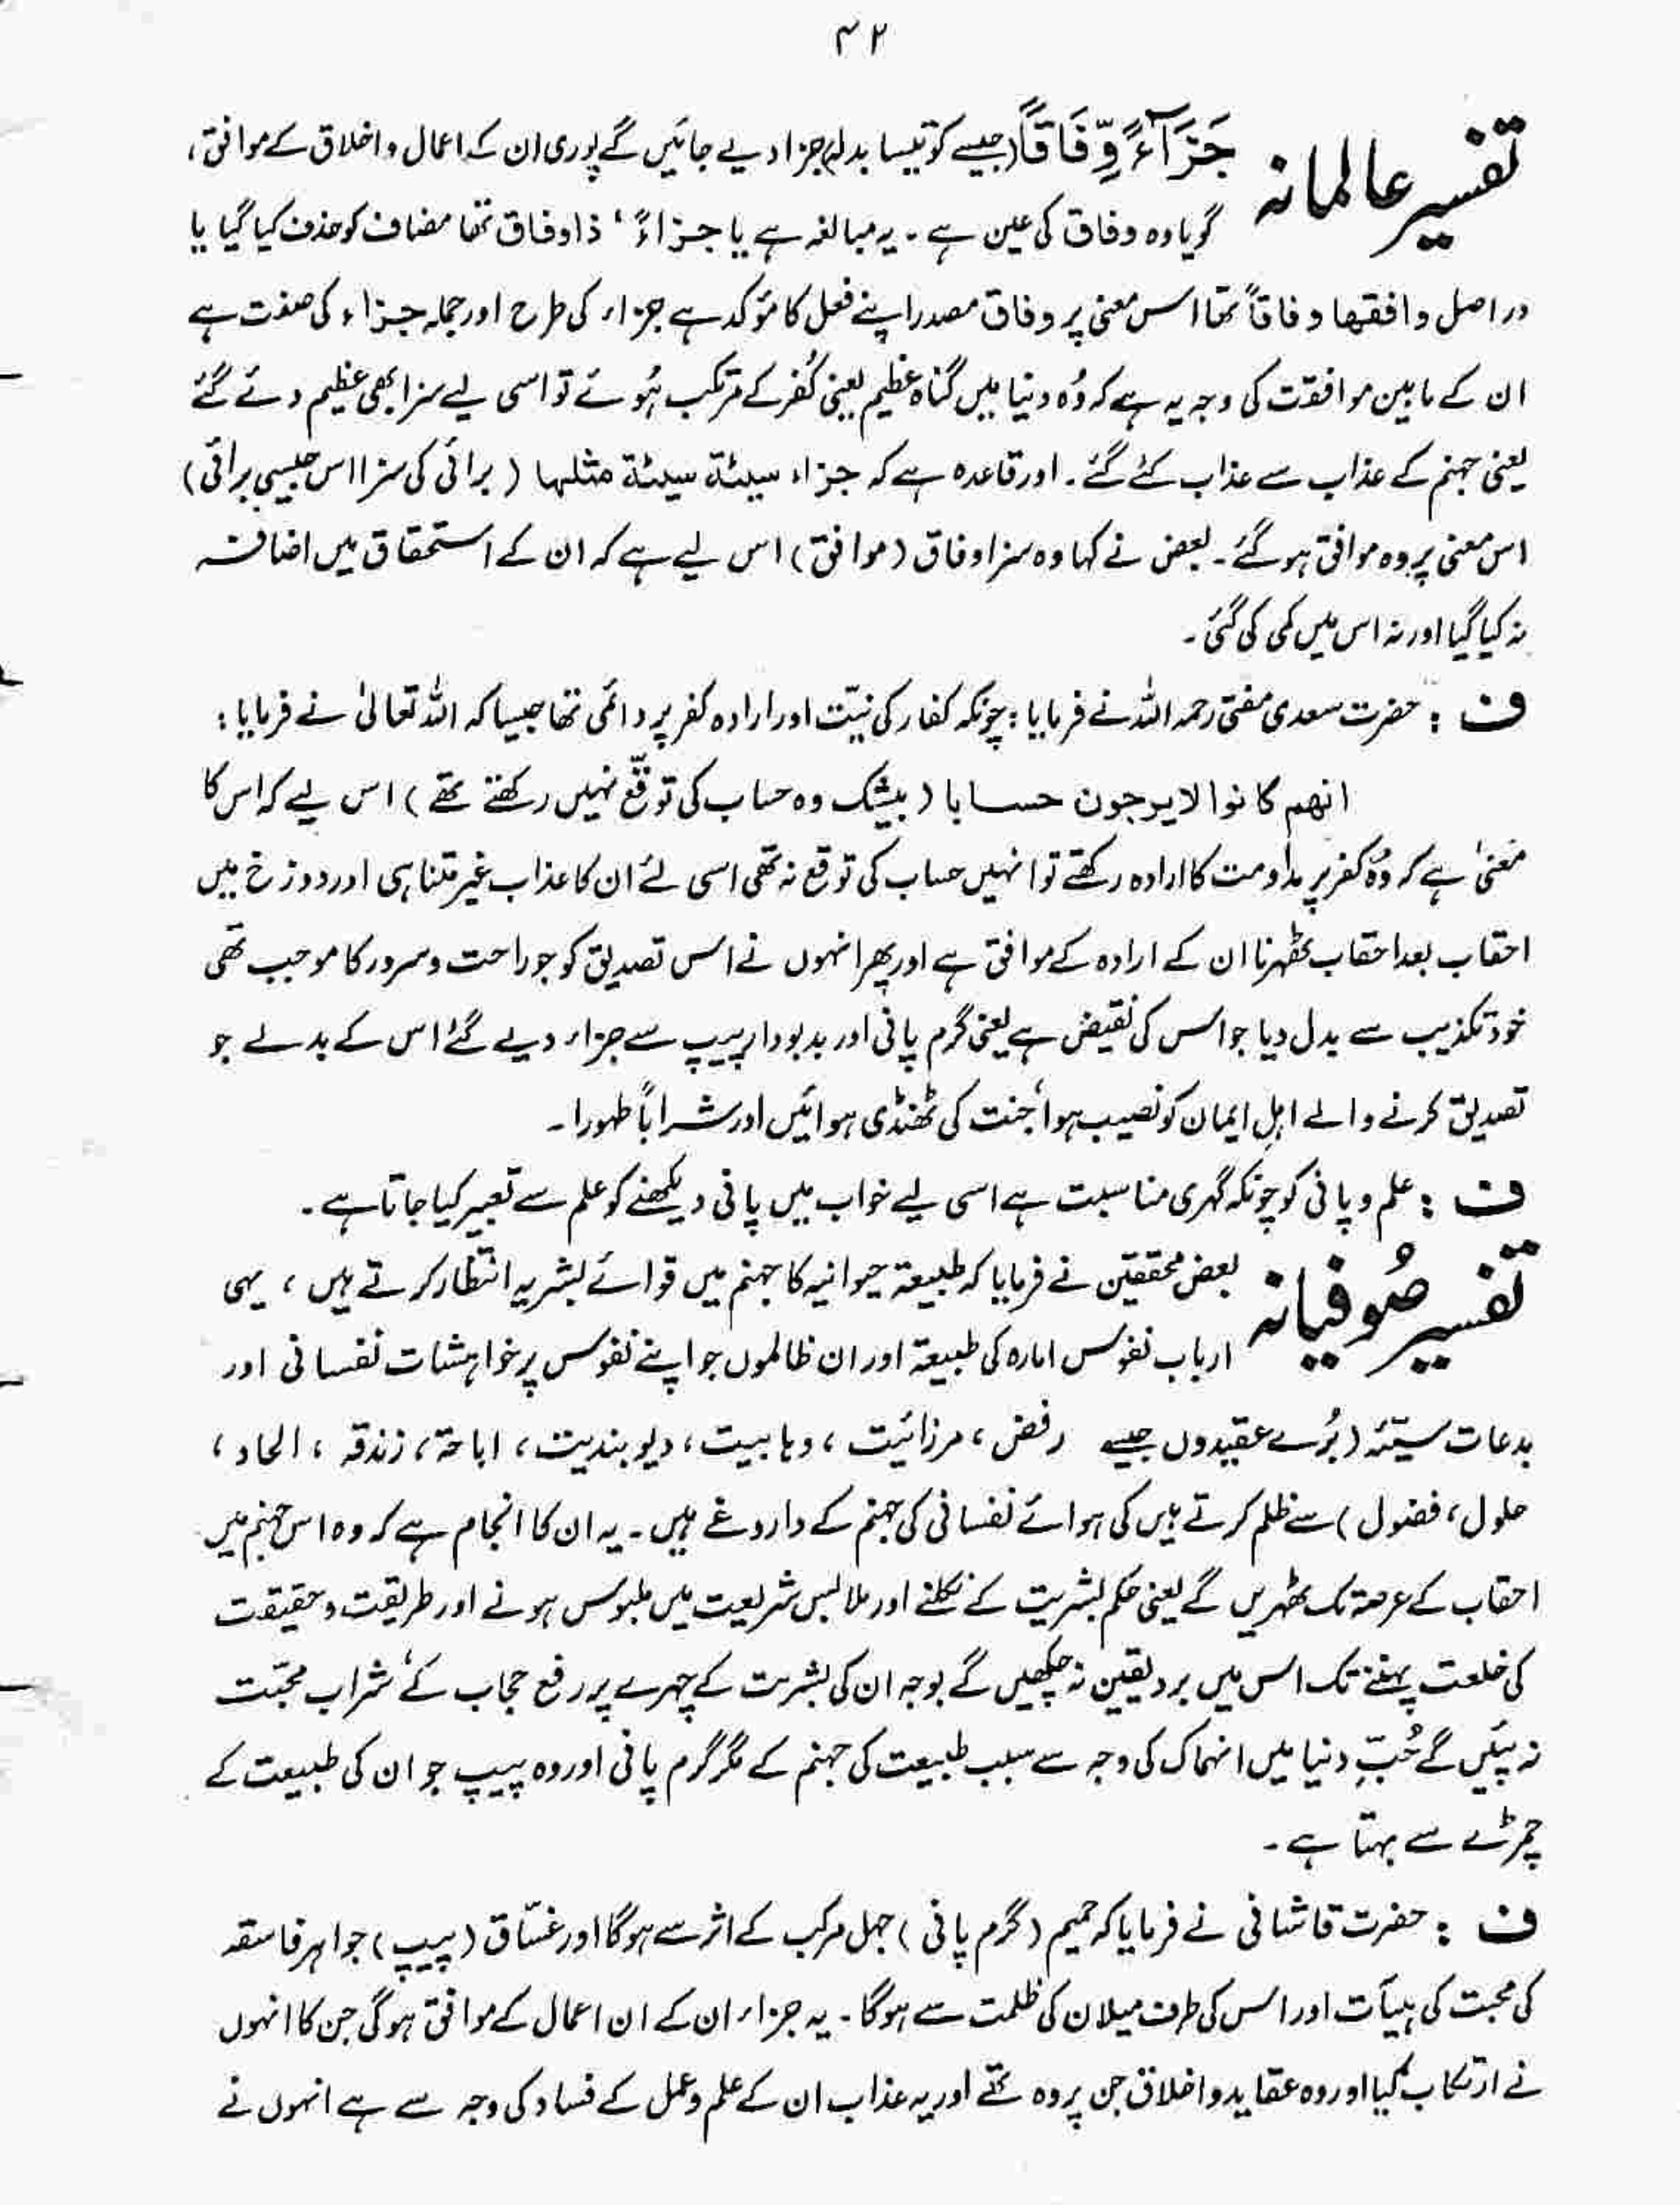 ۴۲
تفسیر عالمانہ جَزَآءً وِّفَاقًا (جیسے کو تیسا بدلہ) جزا دیے جائیں گے پوری ان کے اعمال و اخلاق کے موافق،
گویا وہ وفاق کی عین ہے ۔ یہ مبالغہ ہے یا جزاءً ، ذا وفاق تھا مضاف کو حذف کیا گیا یا
دراصل وافقہا وفاقاً تھا اس معنی پر وفاق مصدر اپنے فعل کا مؤکد ہے جزاء کی طرح اور جملہ جزاء کی صفت ہے
ان کے مابین موافقت کی وجہ یہ ہے کہ وُہ دنیا میں گناہ عظیم یعنی کُفر کے مرتکب ہُوئے تو اسی لیے سزا بھی عظیم دئے گئے
یعنی جہنم کے عذاب سے عذاب کئے گئے ۔ اور قاعدہ ہے کہ جزاء سیئة سیئة مثلہا ( برائی کی سزا اس جیسی برائی )
اس معنی پر وہ موافق ہو گئے ۔ بعض نے کہا وہ سزا وفاق ( موافق ) اس لیے ہے کہ ان کے استحقاق میں اضافہ
نہ کیا گیا اور نہ اس میں کمی کی گئی ۔
ف : حضرت سعدی مفتی رحمہ اللہ نے فرمایا : چونکہ کفار کی نیّت اور ارادہ کفر پر دائمی تھا جیسا کہ اللہ تعالیٰ نے فرمایا :
انھم کانوا لا یرجون حسابا ( بیشک وہ حساب کی توقّع نہیں رکھتے تھے ) اس لیے کہ اس کا
معنیٰ ہے کہ وُہ کفر پر مداومت کا ارادہ رکھتے تو انہیں حساب کی توقع نہ تھی اسی لئے ان کا عذاب غیر متناہی اور دوزخ میں
احقاب بعد احقاب ٹھہرنا ان کے ارادہ کے موافق ہے اور پھر انہوں نے اس تصدیق کو جو راحت و سرور کا موجب تھی
خود تکذیب سے بدل دیا جو اس کی نقیض ہے یعنی گرم پانی اور بدبودار پیپ سے جزاء دیے گئے اس کے بدلے جو
تصدیق کرنے والے اہلِ ایمان کو نصیب ہوا جنت کی ٹھنڈی ہوائیں اور شراباً طہورا ۔
ف : علم و پانی کو چونکہ گہری مناسبت ہے اسی لیے خواب میں پانی دیکھنے کو علم سے تعبیر کیا جاتا ہے ۔
تفسیر صُوفیانہ بعض محققین نے فرمایا کہ طبیعۃ حیوانیہ کا جہنم میں قوائے بشریہ انتظار کرتے ہیں ، یہی
ارباب نفوس امارہ کی طبیعۃ اور ان ظالموں جو اپنے نفوس پر خواہشات نفسانی اور
بدعات سیّئہ ( بُرے عقیدوں جیسے رفض ، مرزائیت ، وہابیت ، دیوبندیت ، اباحۃ ، زندقہ ، الحاد ،
حلول ، فضول ) سے ظلم کرتے ہیں کی ہوائے نفسانی کی جہنم کے داروغے ہیں ۔ یہ ان کا انجام ہے کہ وہ اس جہنم میں
احقاب کے عرصۃ تک ٹھہریں گے یعنی حکم بشریت کے نکلنے اور ملابس شریعت میں ملبوس ہونے اور طریقت و حقیقت
کی خلعت پہننے تک اس میں برد یقین نہ چکھیں گے بوجہ ان کی بشریت کے چہرے پر رفع حجاب کے ، شراب محبّت
نہ پئیں گے حُبِّ دنیا میں انہماک کی وجہ سے سبب طبیعت کی جہنم کے مگر گرم پانی اور وہ پیپ جو ان کی طبیعت کے
چمڑے سے بہتا ہے ۔
ف : حضرت قاشانی نے فرمایا کہ حمیم ( گرم پانی ) جہل مرکب کے اثر سے ہوگا اور غسّاق ( پیپ ) جواہر فاسقہ
کی محبت کی ہیآت اور اس کی طرف میلان کی ظلمت سے ہوگا ۔ یہ جزاء ان کے ان اعمال کے موافق ہوگی جن کا انہوں
نے ارتکاب کیا اور وہ عقاید و اخلاق جن پر وہ تھے اور یہ عذاب ان کے علم و عمل کے فساد کی وجہ سے ہے انہوں نے